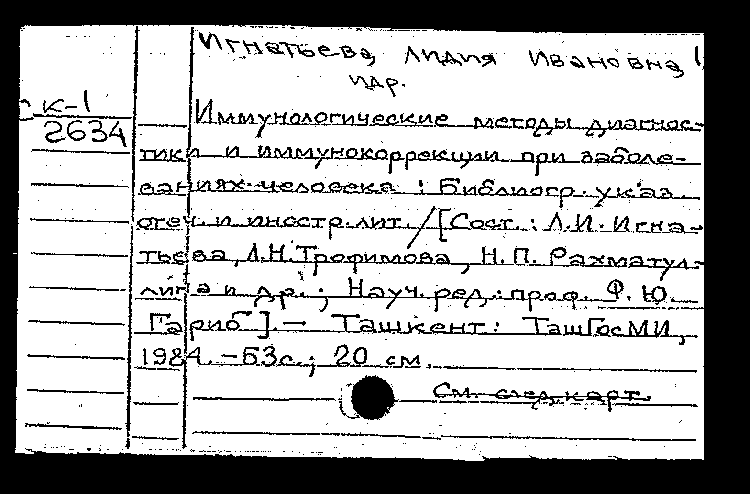 Игнатьева, Лидия Ивановна
и др.
К-1
2634
Иммунологические методы диагнос-
тики и иммунокоррекции при заболе-
ваниях человека : Библиогр. указ.
отеч. и иностр. лит. / [Сост. : Л.И. Игна-
тьева, Л.Н. Трофимова, Н.П. Рахматул-
лина и др. ; Науч. ред.: проф. Ф.Ю.
Гариб]. – Ташкент : ТашГосМИ,
1984. – 63с. ; 20 см.
См. след. карт.